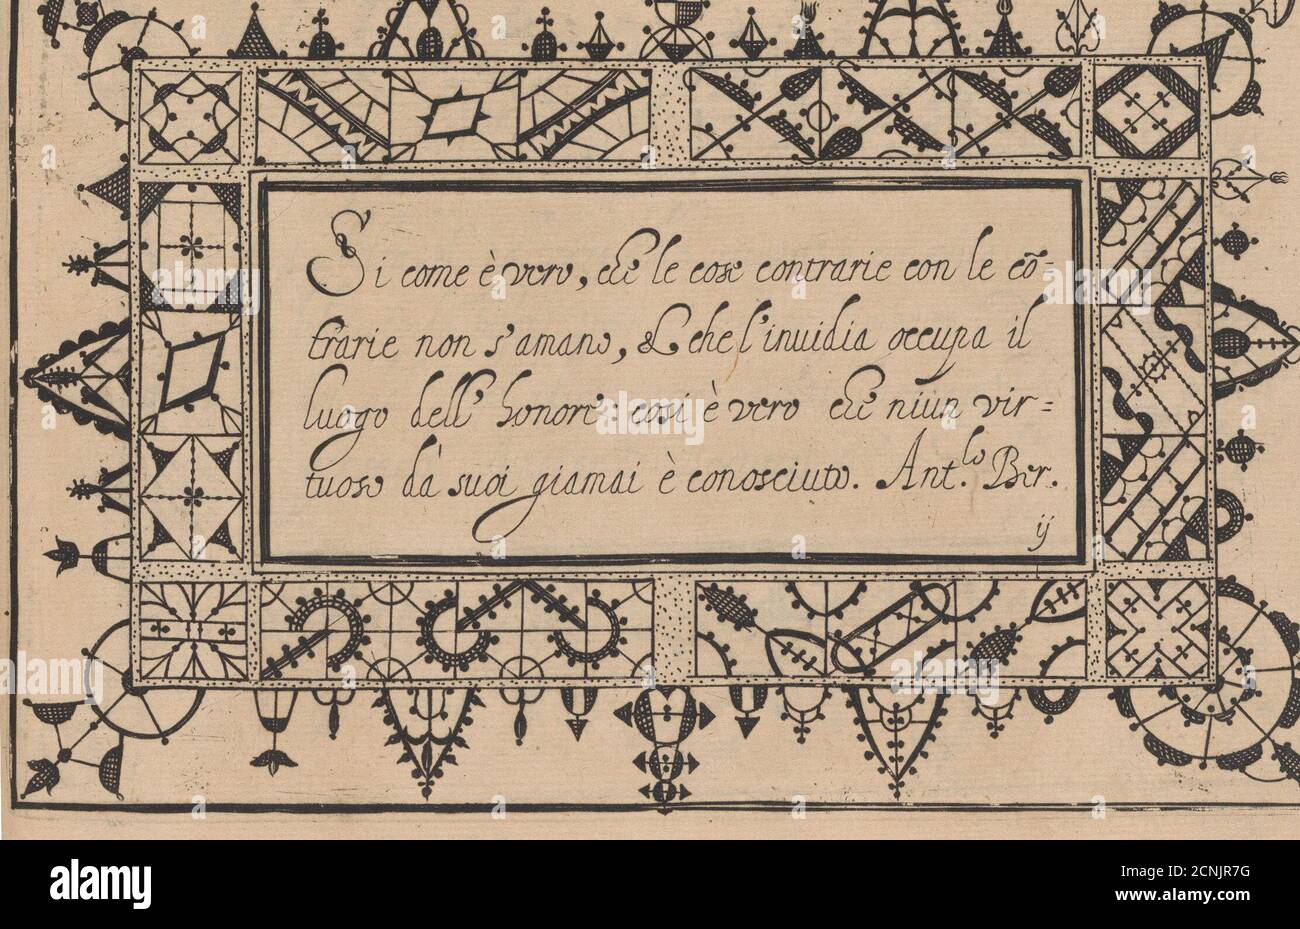 Si come è vero, che le cose contrarie con le cõ=
trarie non s'amano, & che l'inuidia occupa il
luogo dell' honore: cosi è vero che niun vir=
tuoso da suoi giamai è conosciuto. Ant.lo Ber.
ij
alamy
Image ID: 2CNJR7G
www.alamy.com